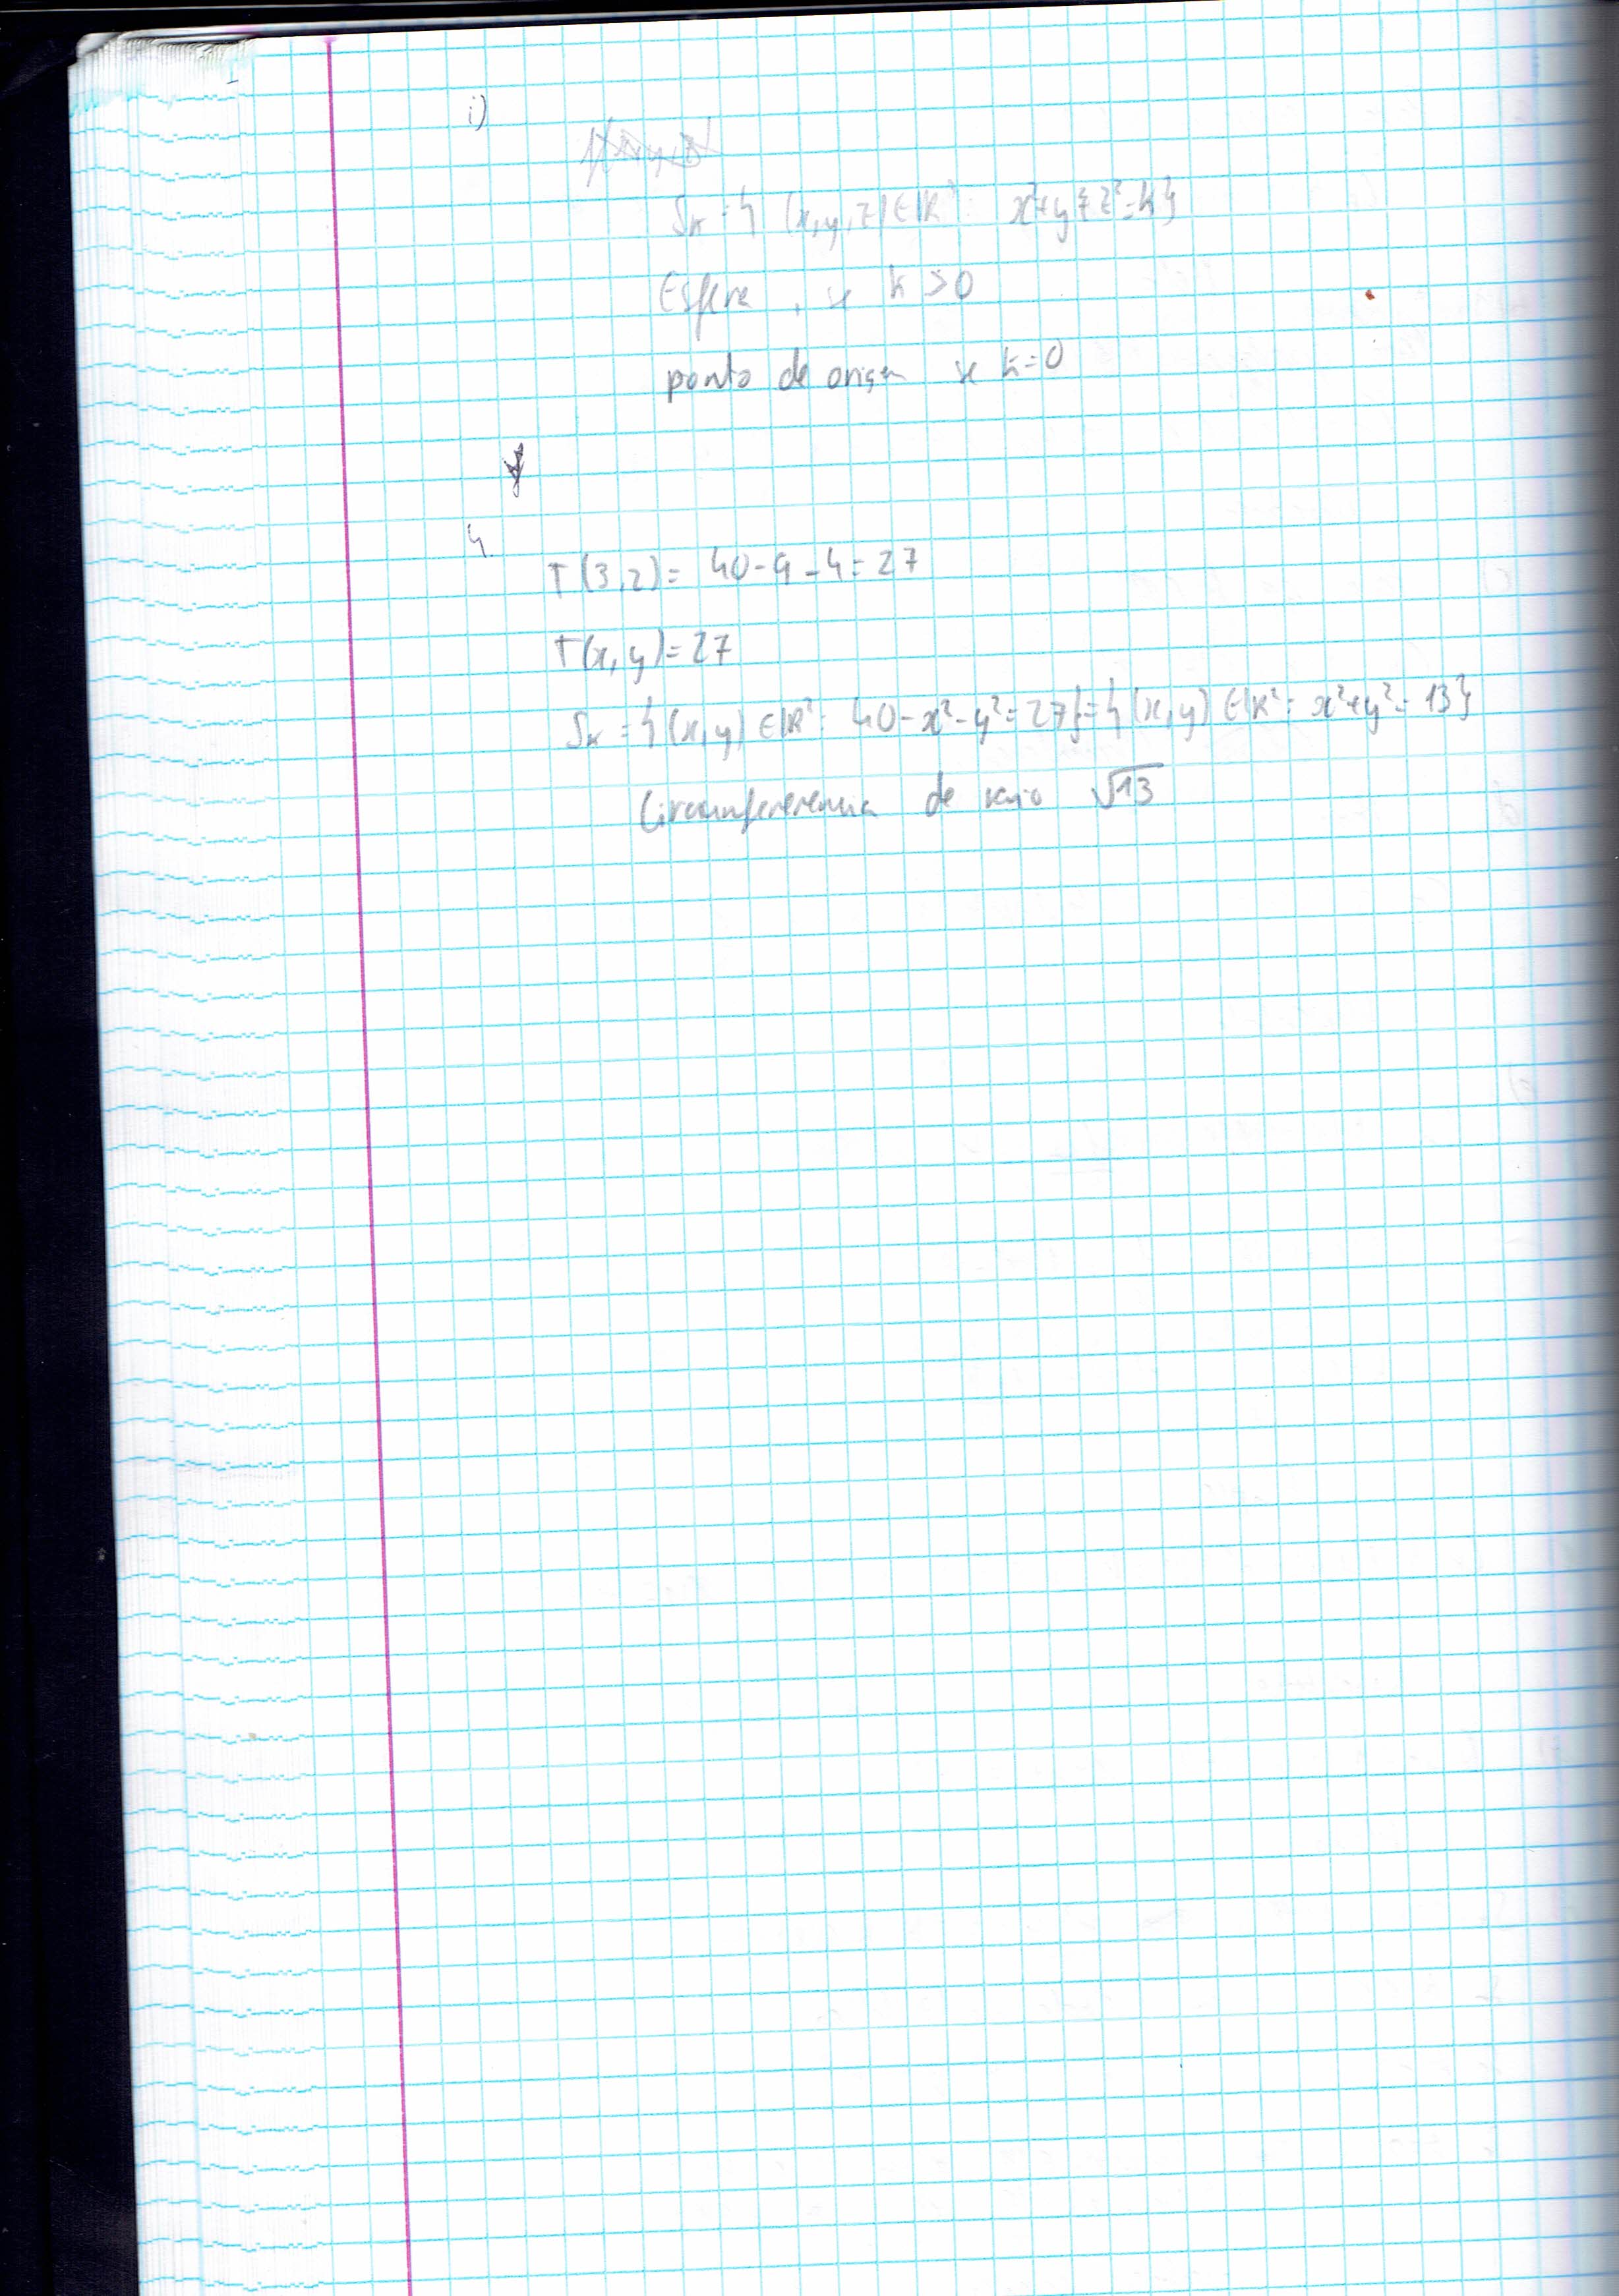 i)
Sₖ = { (x,y,z) ∈ ℝ³ : x²+y²+z² = k }
Esfera , se k > 0
ponto de origem se k = 0
4.
T(3,2) = 40-9-4 = 27
T(x,y) = 27
Sₖ = { (x,y) ∈ ℝ² : 40-x²-y² = 27 } = { (x,y) ∈ ℝ² : x²+y² = 13 }
Circunferência de raio √13